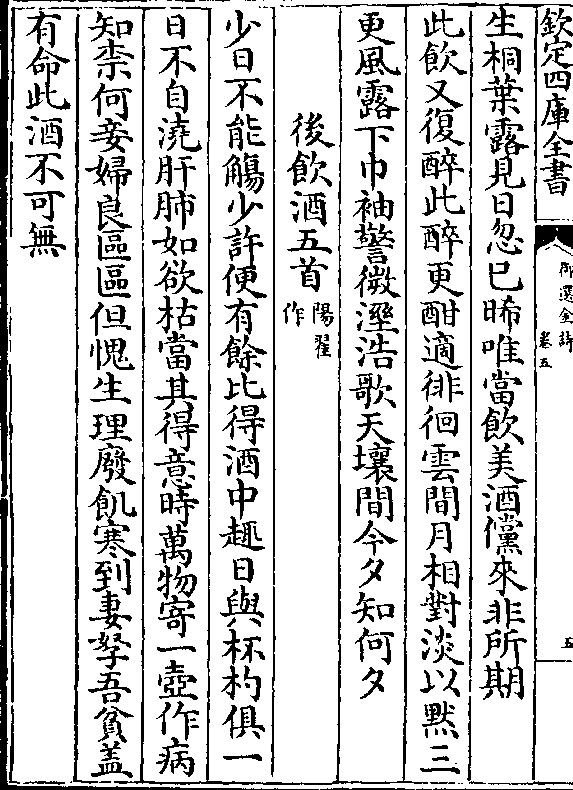 欽定四庫全書
御選金詩
卷五
五
生桐葉露見日忽已晞唯當飲美酒儻來非所期
此飲又復醉此醉更酣適徘徊雲間月相對淡以黙三
更風露下巾袖警微溼浩歌天壤間今夕知何夕
後飲酒五首陽翟作
少日不能觴少許便有餘比得酒中趣日與杯杓俱一
日不自澆肝肺如欲枯當其得意時萬物寄一壺作病
知柰何妾婦良區區但愧生理廢飢寒到妻孥吾貧盖
有命此酒不可無